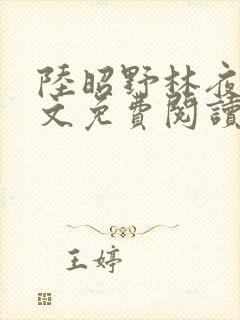 陸昭野林夜
文免費閱讀
王婷